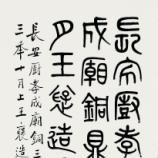 長安廚孝
成廟銅鼎
月王褒造
長安廚孝成廟銅三
三本十月上王褒造